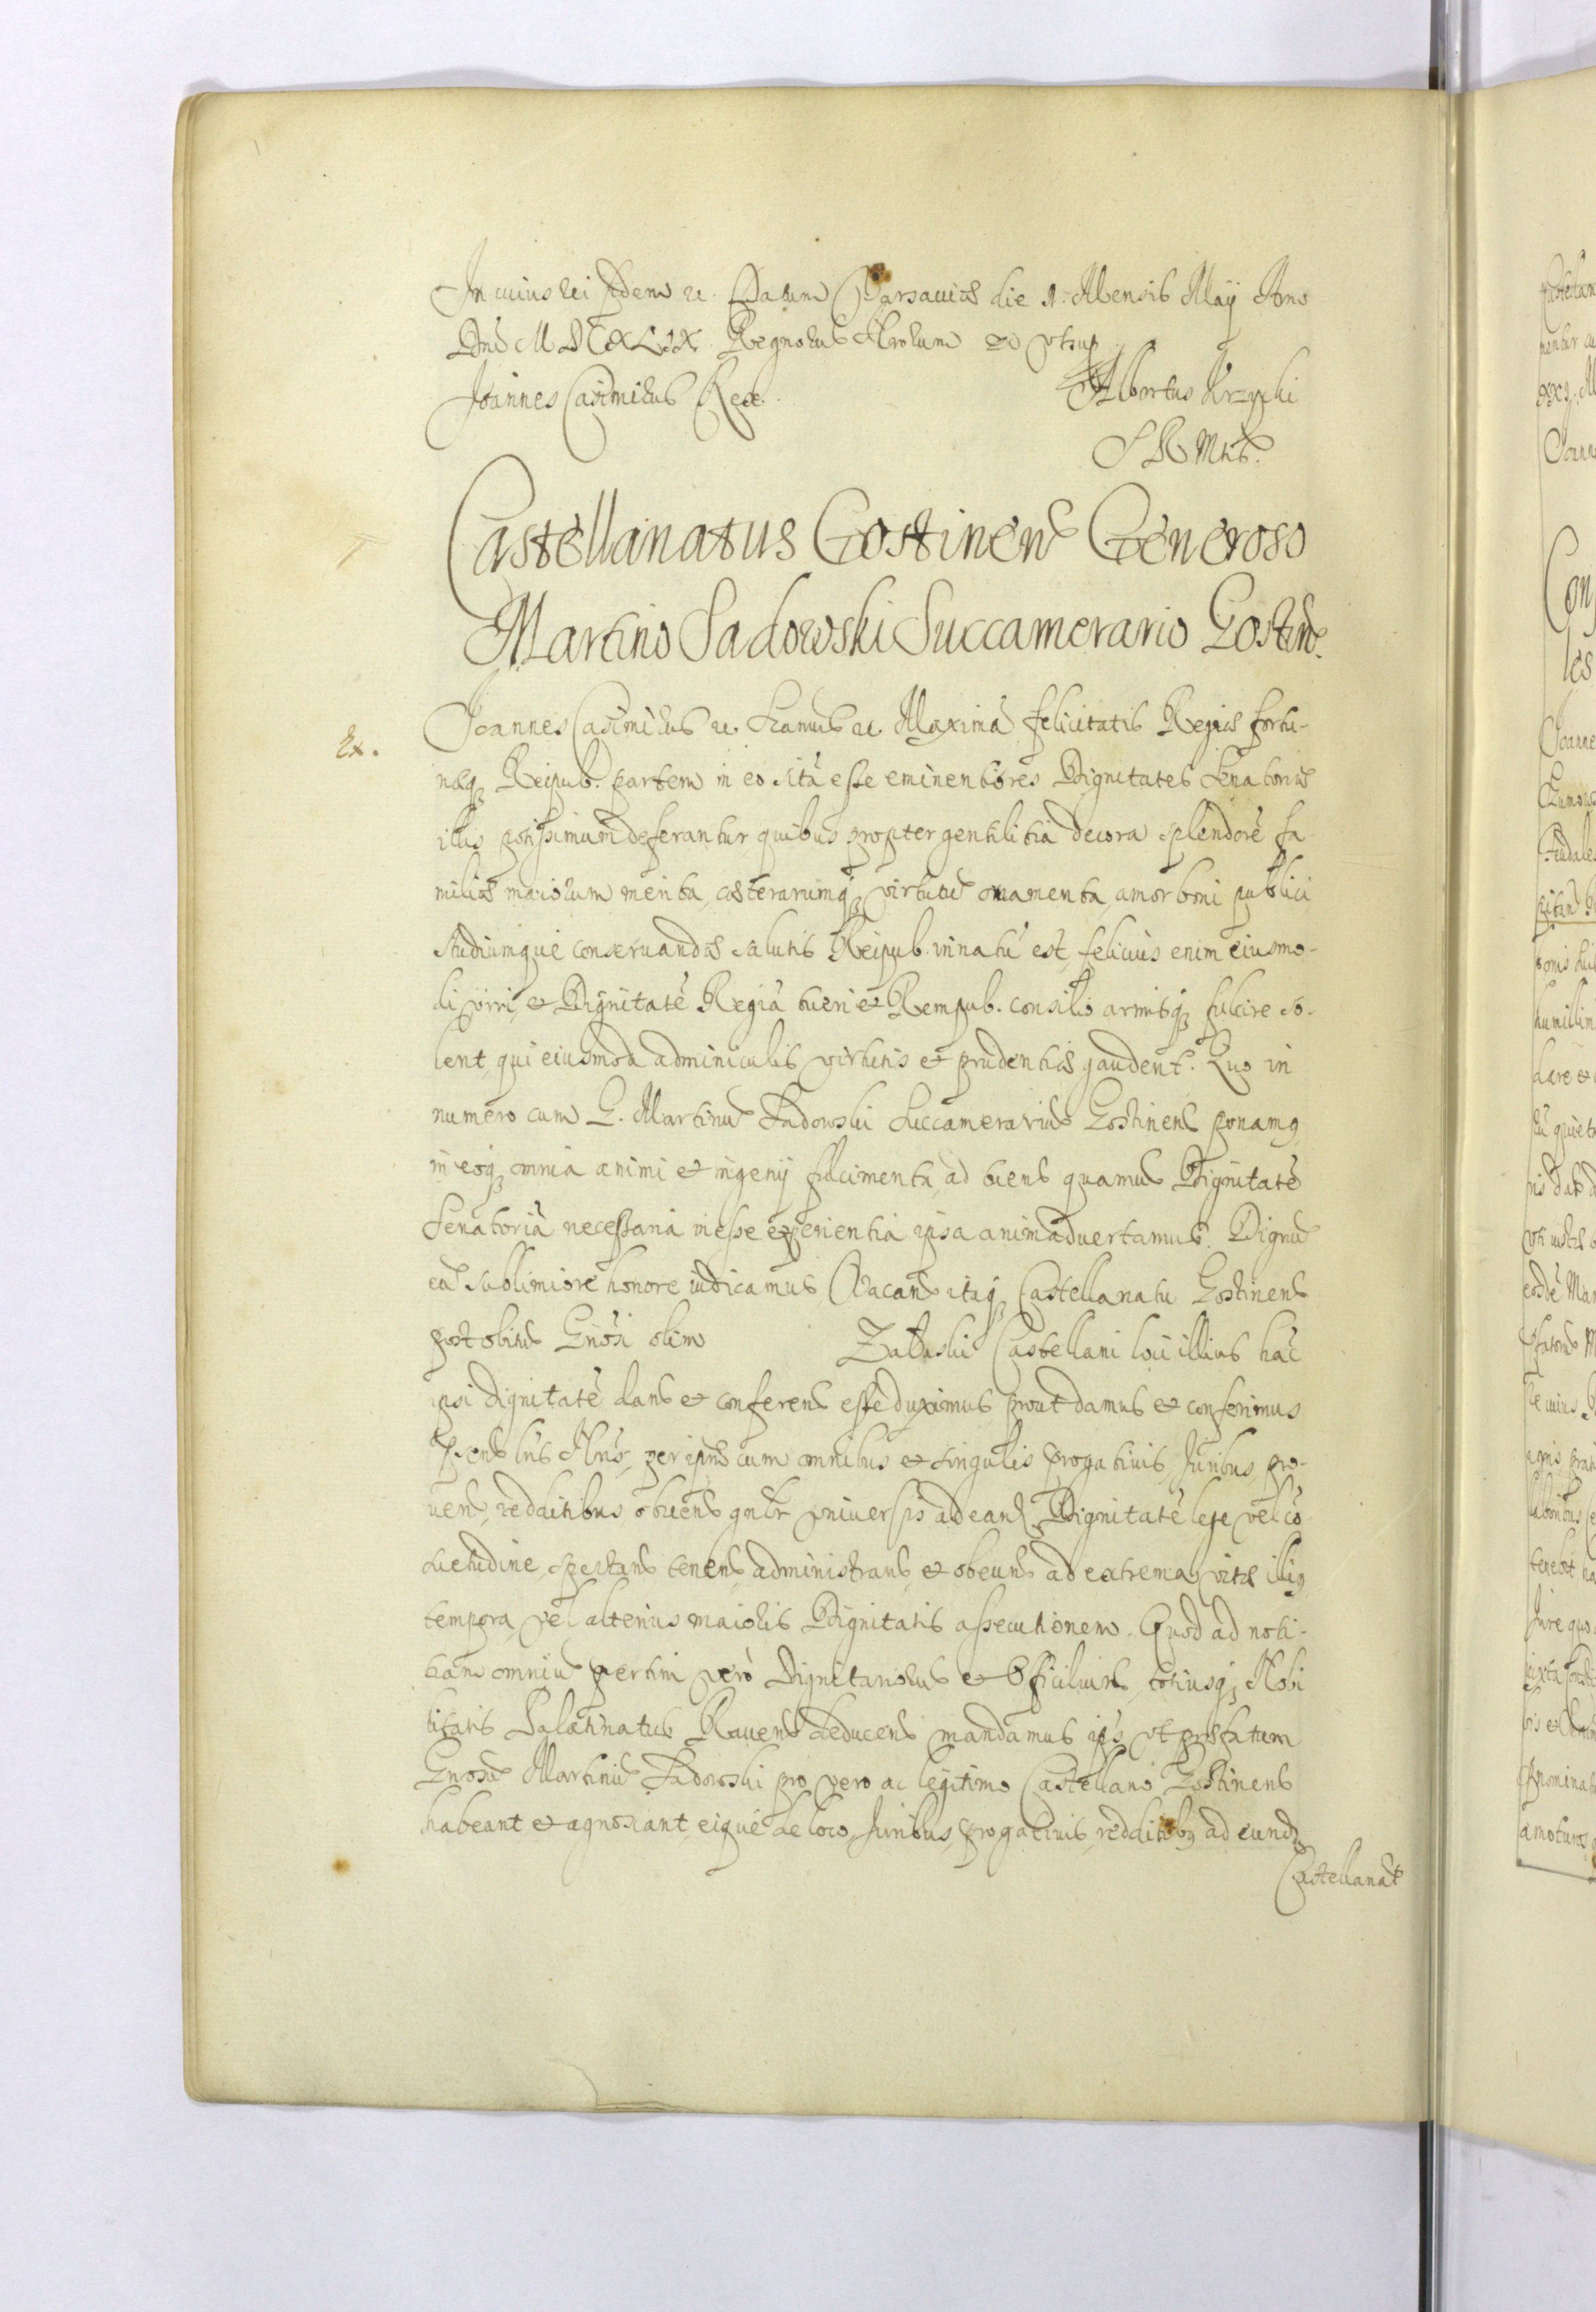 In cuius rei fidem etc. Datum Varsauiæ die 1. Mensis Maÿ Ano
Dni MDCXLIX Regnorum Nrorum etc. vtsup
Joannes Casimirus Rex.
Albertus Krzycki
S R Mtis.
Castellanatus Gostinen Generoso
Martino Sadowski Succamerario Gostin.
Ex.
Joannes Casimirus etc. Sramus etc. Maximã felicitatis Regiæ fortu-
næq Reipub. partem in eo sitã esse eminentiores Dignitates Senatoriæ
illis potissimum deferantur, quibus propter gentilitia decora splendorẽ fa-
miliæ maiorum merita, cæterarumq virtutũ ornamenta, amor boni publici
studiumque conseruandæ salutis Reipub. innatũ est, felicius enim eiusmo-
di viri, et Dignitatẽ Regiã tueri et Rempub. consilio armisq fulcire so-
lent, qui eiusmodi adminiculis virtutis et prudentiæ gaudent. Quo in
numero cum G. Martinũ Sadowski Succamerariũ Gostinen ponamq
in eoq omnia animi et ingenij fulcimenta, ad tuens quamuis Dignitatẽ
Senatoriã necessaria inesse experientia ipsa animaduertamus. Dignũ
eũ sublimiore honore iudicamus Vacan itaq Castellanatu Gostinen
post obitũ Gnosi olim Zaluski Castellani loci illius hãc
ipsi dignitatẽ dans et conferens esse duximus, prout damus et conferimus
psens lris Nris, per ipsũ cum omnibus et singulis progatiuis, Juribus, pro-
uen, redditibus obuen gnlr vniuersis ad eand Dignitatẽ lege vel cõ-
suetudine, spectans tenen, administran, et obeun ad extrema vitæ illiq
tempora, vel alterius maioris Dignitatis assecutionem. Quod ad noti-
tiam omniũ pertim verò Dignitariorũ et Officialium totiusq Nobi
litatis Palatinatus Rauen deducens mandamus ips vt præfatum
Gnosũ Martinũ Sadowski pro vero ac legitimo Castellano Gostinens
habeant et agnoscant, eique de loco, Juribus, progatiuis, redditibq ad eund
Castellanat